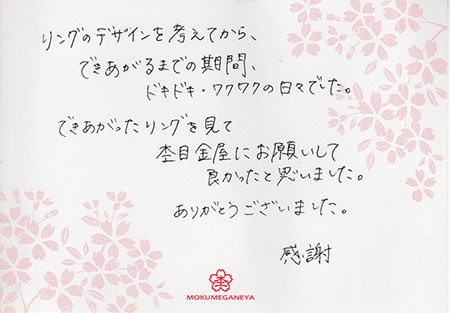 リングのデザインを考えてから、
できあがるまでの期間、
ドキドキ・ワクワクの日々でした。
できあがったリングを見て
杢目金屋にお願いして
良かったと思いました。
ありがとうございました。
感謝
杢
MOKUMEGANEYA